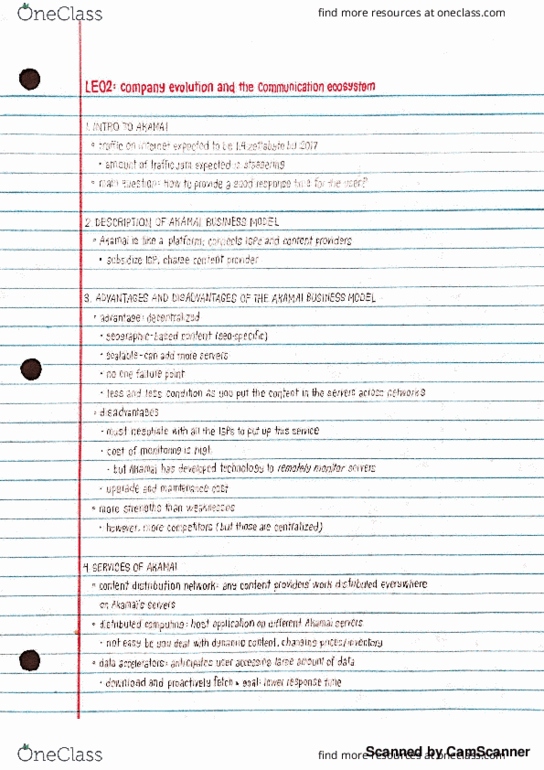 OneClass
find more resources at oneclass.com
LEO2: company evolution and the communication ecosystem
1. INTRO TO AKAMAI
• traffic on internet expected to be 1.4 zettabyte by 2017
• amount of traffic jam expected is staggering
• main question: how to provide a good response time for the user?
2. DESCRIPTION OF AKAMAI BUSINESS MODEL
• Akamai is like a platform; connects ISPs and content providers
• subsidize ISP, charge content provider
3. ADVANTAGES AND DISADVANTAGES OF THE AKAMAI BUSINESS MODEL
• advantage: decentralized
• geographic-based content (geo-specific)
• scalable - can add more servers
• no one failure point
• less and less condition as you put the content in the servers across networks
• disadvantages
• must negotiate with all the ISPs to put up this service
• cost of monitoring is high
• but Akamai has developed technology to remotely monitor servers
• upgrade and maintenance cost
• more strengths than weaknesses
• however, more competitors (but those are centralized)
4. SERVICES OF AKAMAI
• content distribution network: any content providers' work distributed everywhere
on Akamai's servers
• distributed computing: host application on different Akamai servers
• not easy bc you deal with dynamic content, changing prices/inventory
• data accelerators: anticipates user accessing large amount of data
• download and proactively fetch • goal: lower response time
OneClass
find more resources at oneclass.com
Scanned by CamScanner